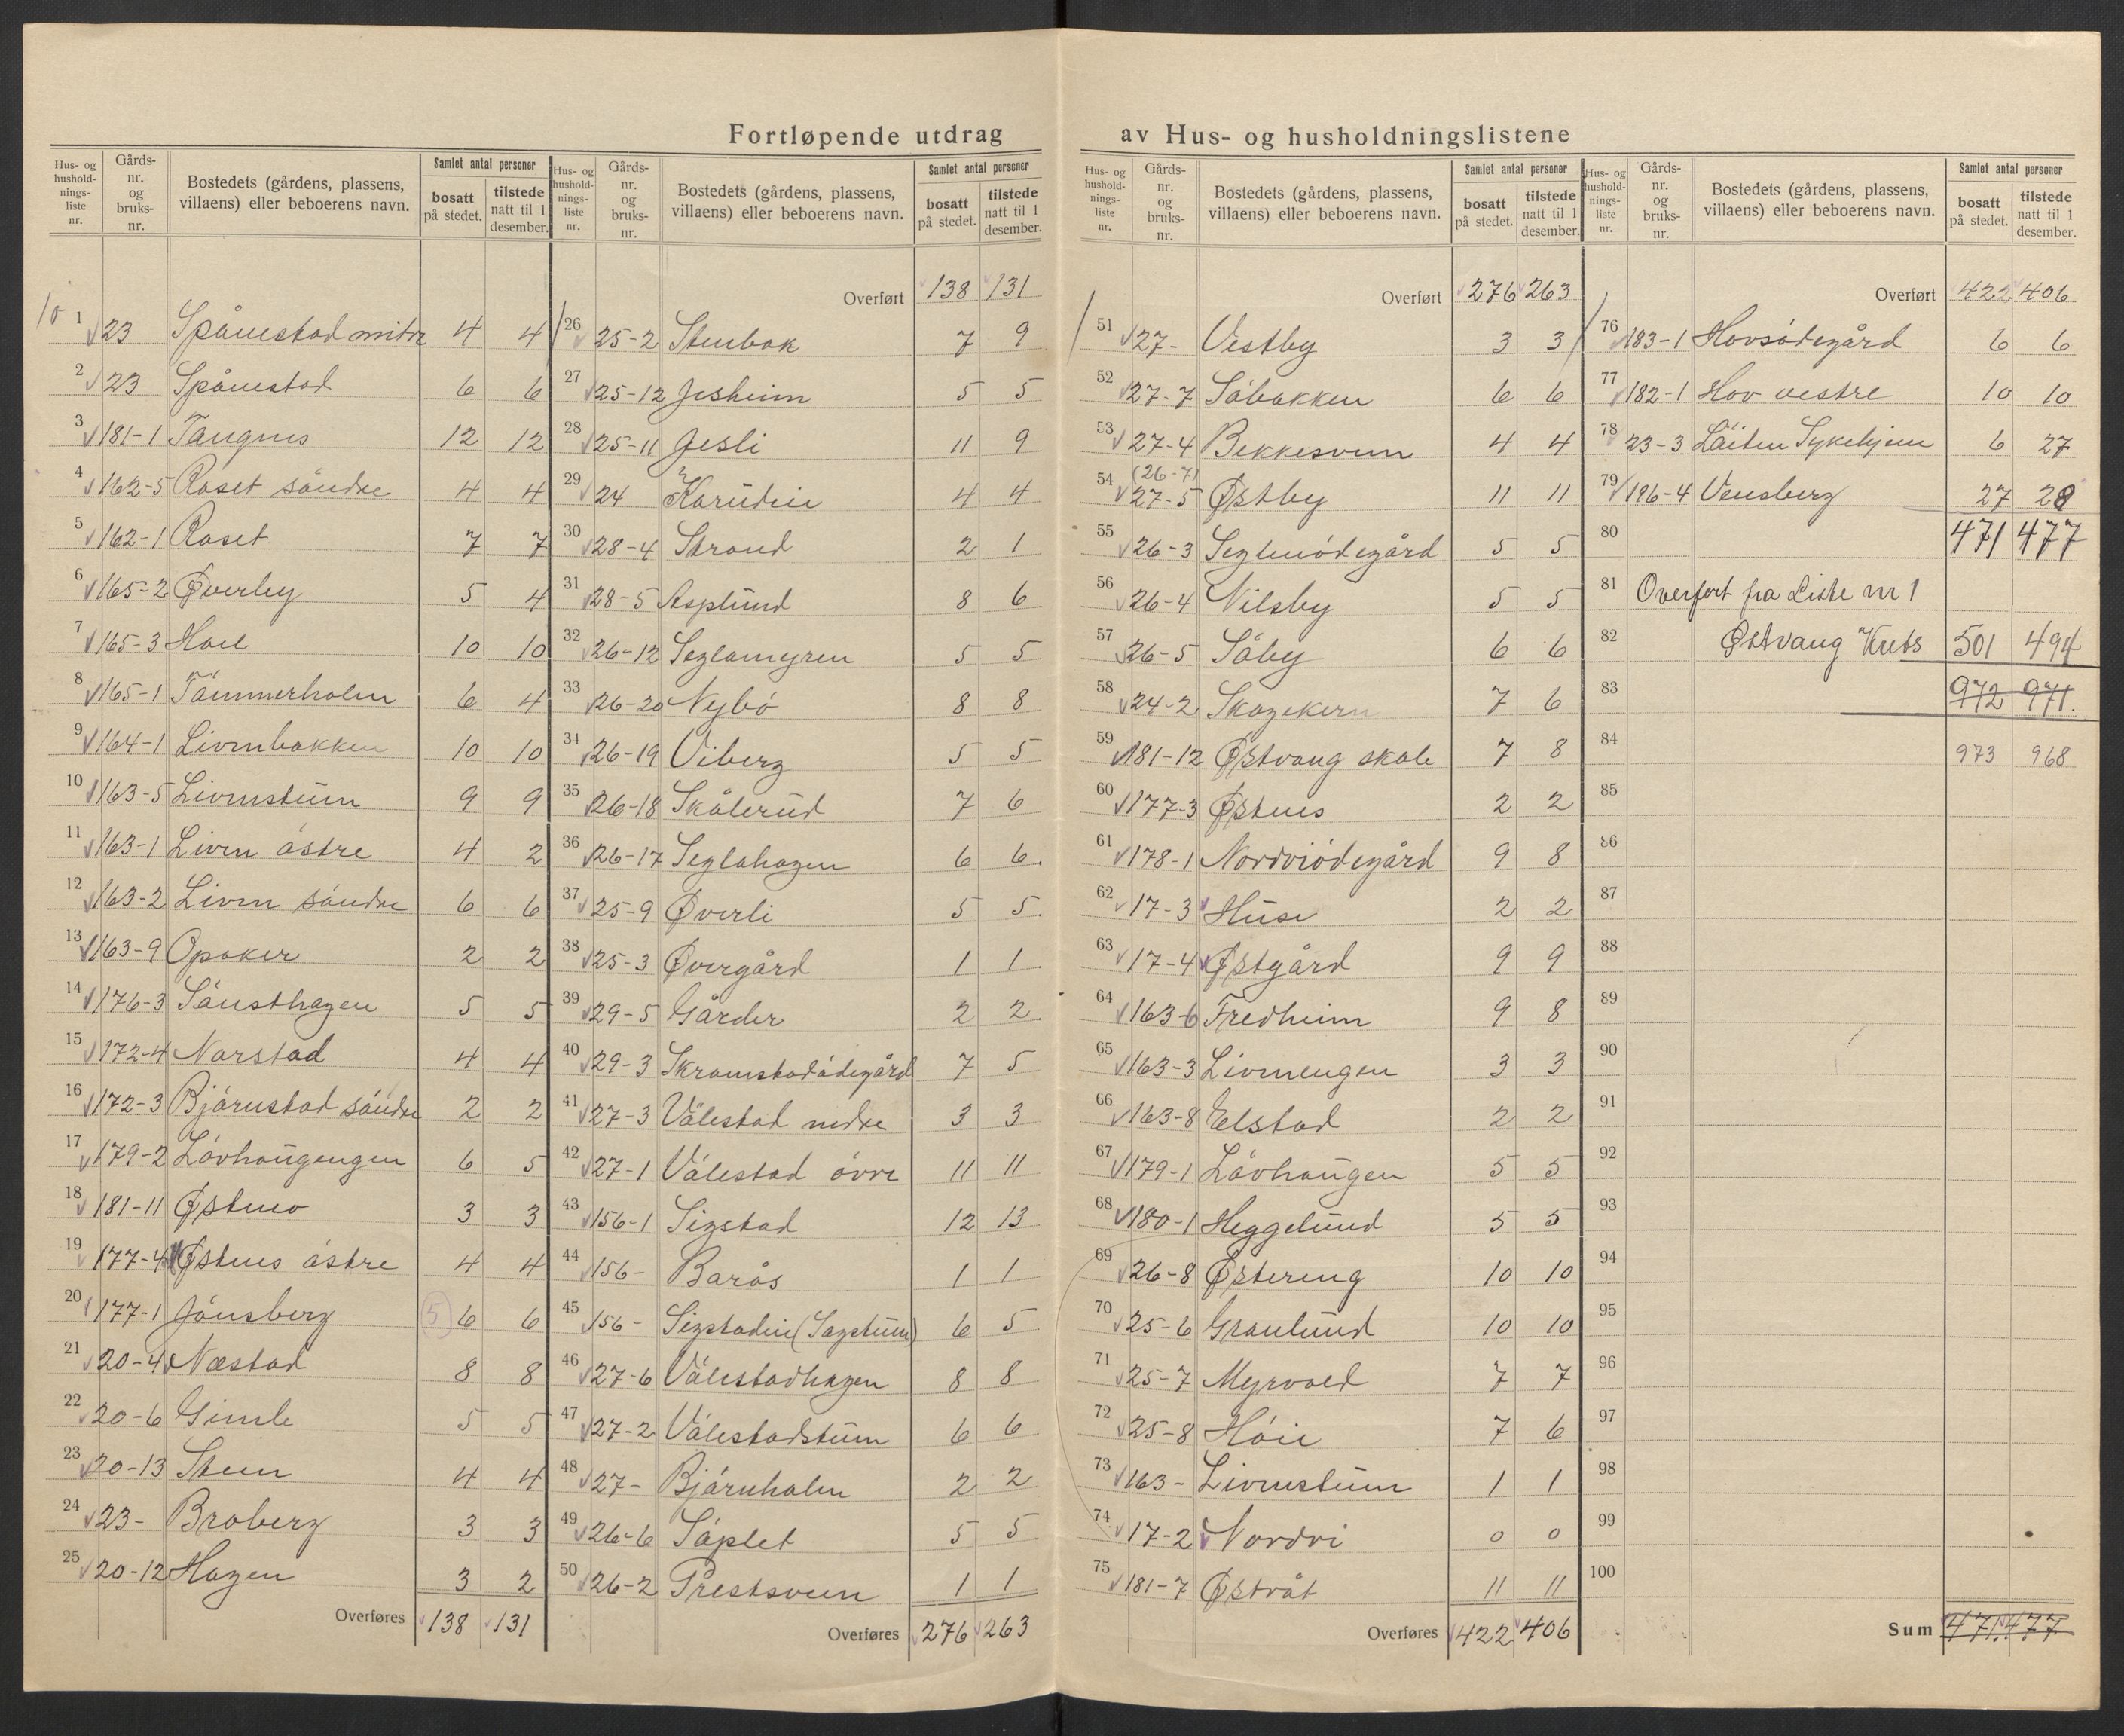 Fortløpende utdrag av Hus- og husholdningslistene
Hus- og husholdnings-liste nr. | Gårds-nr. og bruks-nr. | Bostedets (gårdens, plassens, villaens) eller beboerens navn. | Samlet antal personer | bosatt på stedet. | tilstede natt til 1 desember.
10
1 23 Spånestad mitre 4 4
2 23 Spånestad 6 6
3 181-1 Tangnes 12 12
4 162-5 Roset söndre 4 4
5 162-1 Roset 7 7
6 165-2 Øverby 5 4
7 165-3 Hoel 10 10
8 165-1 Tömmerholen 6 4
9 164-1 Livrnbakken 10 10
10 163-5 Livrnstuen 9 9
11 163-1 Livrn östre 4 2
12 163-2 Livrn söndre 6 6
13 163-9 Opaker 2 2
14 176-3 Sönsthagen 5 5
15 172-4 Narstad 4 4
16 172-3 Bjørnstad söndre 2 2
17 179-2 Lövhaugengen 6 5
18 181-11 Østmo 3 3
19 177-4 Østnes östre 4 4
20 177-1 Jönsberg (5) 6 6
21 20-4 Næstad 8 8
22 20-6 Gimle 5 5
23 20-13 Steen 4 4
24 23- Broberg 3 3
25 20-12 Hagen 3 2
Overføres 138 131
Hus- og husholdnings-liste nr. | Gårds-nr. og bruks-nr. | Bostedets (gårdens, plassens, villaens) eller beboerens navn. | Samlet antal personer | bosatt på stedet. | tilstede natt til 1 desember.
Overført 138 131
26 25-2 Stenbak 7 9
27 25-12 Jesheim 5 5
28 25-11 Jesli 11 9
29 24 Karudin 4 4
30 28-4 Strand 2 1
31 28-5 Asplund 8 6
32 26-12 Seglamyren 5 5
33 26-20 Nybö 8 8
34 26-19 Viberg 5 5
35 26-18 Skålerud 7 6
36 26-17 Seglahagen 6 6
37 25-9 Øverli 5 5
38 25-3 Øvergård 1 1
39 29-5 Gårder 2 2
40 29-3 Skramstadödegård 7 5
41 27-3 Vålestad nedre 3 3
42 27-1 Vålestad övre 11 11
43 156-1 Sigstad 12 13
44 156- Barås 1 1
45 156- Sigstadeie (Sagstuen) 6 5
46 27-6 Vålestadhagen 8 8
47 27-2 Vålestadstuen 6 6
48 27- Bjørnholen 2 2
49 26-6 Söplet 5 5
50 26-2 Prestsveen 1 1
Overføres 276 263
Hus- og husholdnings-liste nr. | Gårds-nr. og bruks-nr. | Bostedets (gårdens, plassens, villaens) eller beboerens navn. | Samlet antal personer | bosatt på stedet. | tilstede natt til 1 desember.
Overført 276 263
51 27- Vestby 3 3
52 27-7 Söbakken 6 6
53 27-4 Bekkesveen 4 4
(26-7)
54 27-5 Østby 11 11
55 26-3 Seglmödegård 5 5
56 26-4 Nilsby 5 5
57 26-5 Söby 6 6
58 24-2 Skogekern 7 6
59 181-12 Østvang skole 7 8
60 177-3 Østnes 2 2
61 178-1 Nordviödegård 9 8
62 17-3 Huse 2 2
63 17-4 Østgård 9 9
64 163-6 Fredheim 9 8
65 163-3 Livrnengen 3 3
66 163-8 Elstad 2 2
67 179-1 Lövhaugen 5 5
68 180-1 Heggelund 5 5
69 26-8 Østereng 10 10
70 25-6 Granlund 10 10
71 25-7 Myrvold 7 7
72 25-8 Höie 7 6
73 163- Livrnstuen 1 1
74 17-2 Nordvi 0 0
75 181-7 Østvåt 11 11
Overføres 422 406
Hus- og husholdnings-liste nr. | Gårds-nr. og bruks-nr. | Bostedets (gårdens, plassens, villaens) eller beboerens navn. | Samlet antal personer | bosatt på stedet. | tilstede natt til 1 desember.
Overført 422 406
76 183-1 Hovsödegård 6 6
77 182-1 Hov vestre 10 10
78 23-3 Löiten Sykehjem 6 27
79 196-4 Vensberg 27 28
80 471 477
81 Overfort fra Liste nr 1
82 Østvang Krets 501 494
83 972 971.
84 973 968
85
86
87
88
89
90
91
92
93
94
95
96
97
98
99
100
Sum 471 477